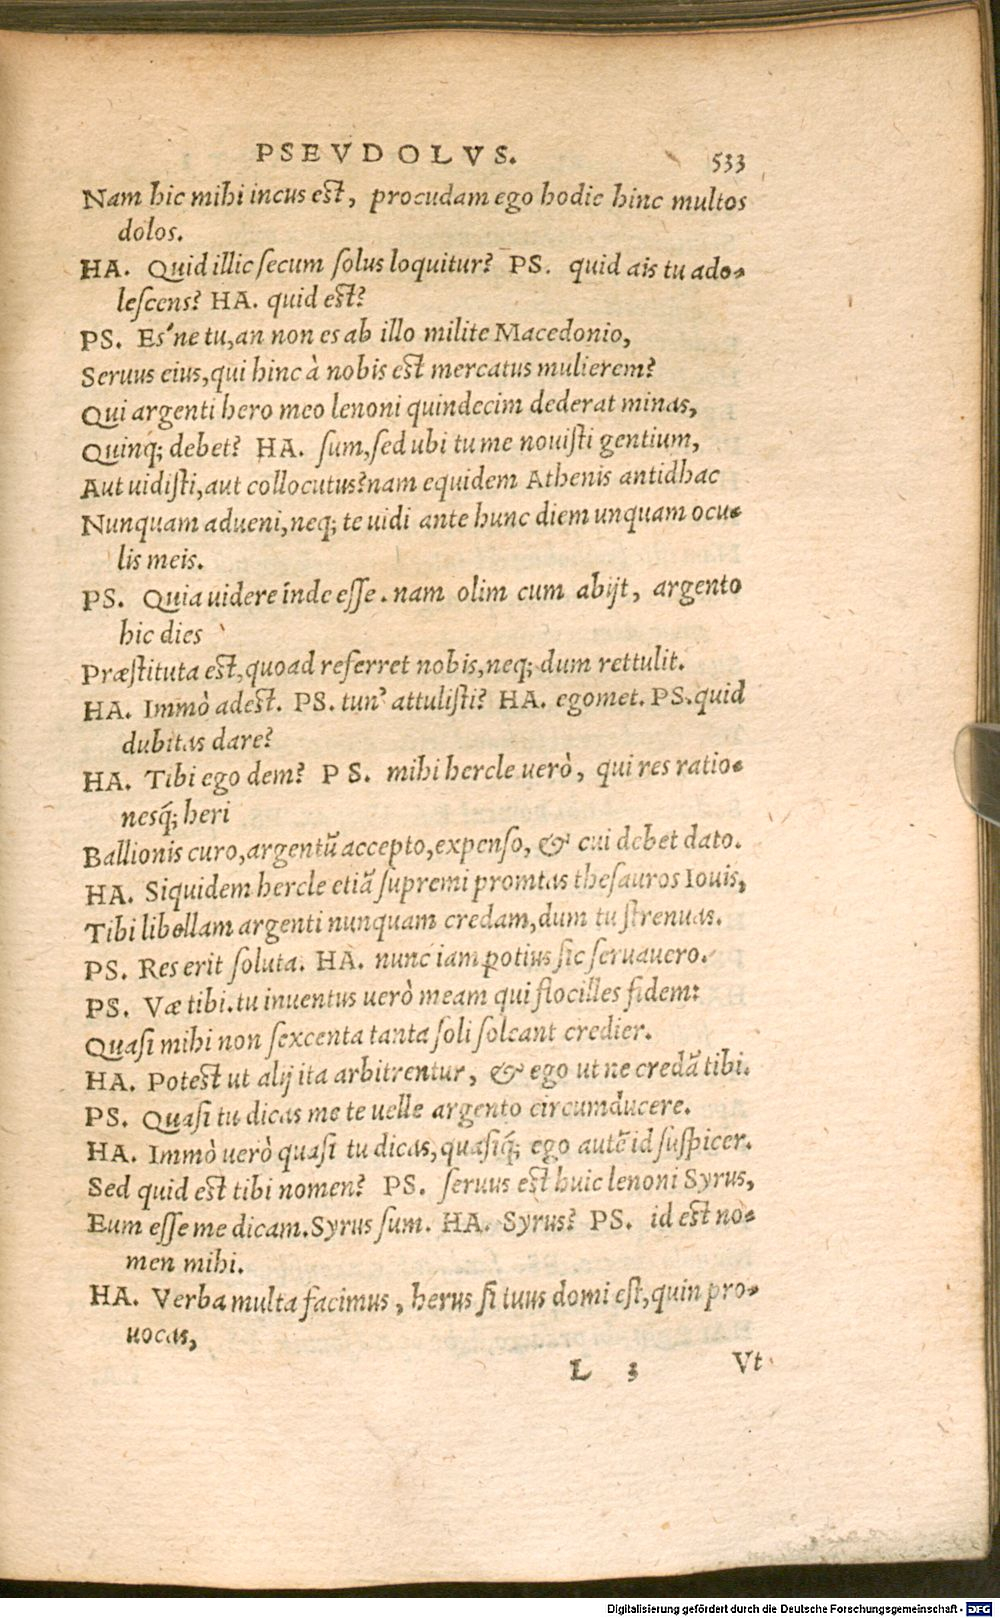 PSEVDOLVS. 533
Nam hic mihi incus est, procudam ego hodie hinc multos
dolos.
HA. Quid illic secum solus loquitur? PS. quid ais tu ado-
lescens? HA. quid est?
PS. Es'ne tu, an non es ab illo milite Macedonio,
Seruus eius, qui hinc à nobis est mercatus mulierem?
Qui argenti hero meo lenoni quindecim dederat minas,
Quinq; debet? HA. sum, sed ubi tu me nouisti gentium,
Aut uidisti, aut collocutus? nam equidem Athenis antidhac
Nunquam adueni, neq; te uidi ante hunc diem unquam ocu-
lis meis.
PS. Quia uidere inde esse. nam olim cum abijt, argento
hic dies
Præstituta est, quoad referret nobis, neq; dum rettulit.
HA. Immò adest. PS. tun' attulisti? HA. egomet. PS. quid
dubitas dare?
HA. Tibi ego dem? PS. mihi hercle uerò, qui res ratio-
nesq́; heri
Ballionis curo, argentũ accepto, expenso, & cui debet dato.
HA. Siquidem hercle etiã supremi promtas thesauros Iouis,
Tibi libellam argenti nunquam credam, dum tu strenuas.
PS. Res erit soluta. HA. nunc iam potius sic seruauero.
PS. Væ tibi. tu inuentus uerò meam qui flocilles fidem:
Quasi mihi non sexcenta tanta soli soleant credier.
HA. Potest ut alij ita arbitrentur, & ego ut ne credã tibi.
PS. Quasi tu dicas me te uelle argento circumducere.
HA. Immò uerò quasi tu dicas, quasiq́; ego autẽ id suspicer.
Sed quid est tibi nomen? PS. seruus est huic lenoni Syrus,
Eum esse me dicam. Syrus sum. HA. Syrus? PS. id est no-
men mihi.
HA. Verba multa facimus, herus si tuus domi est, quin pro-
uocas,
L 3 Vt
Digitalisierung gefördert durch die Deutsche Forschungsgemeinschaft - DFG